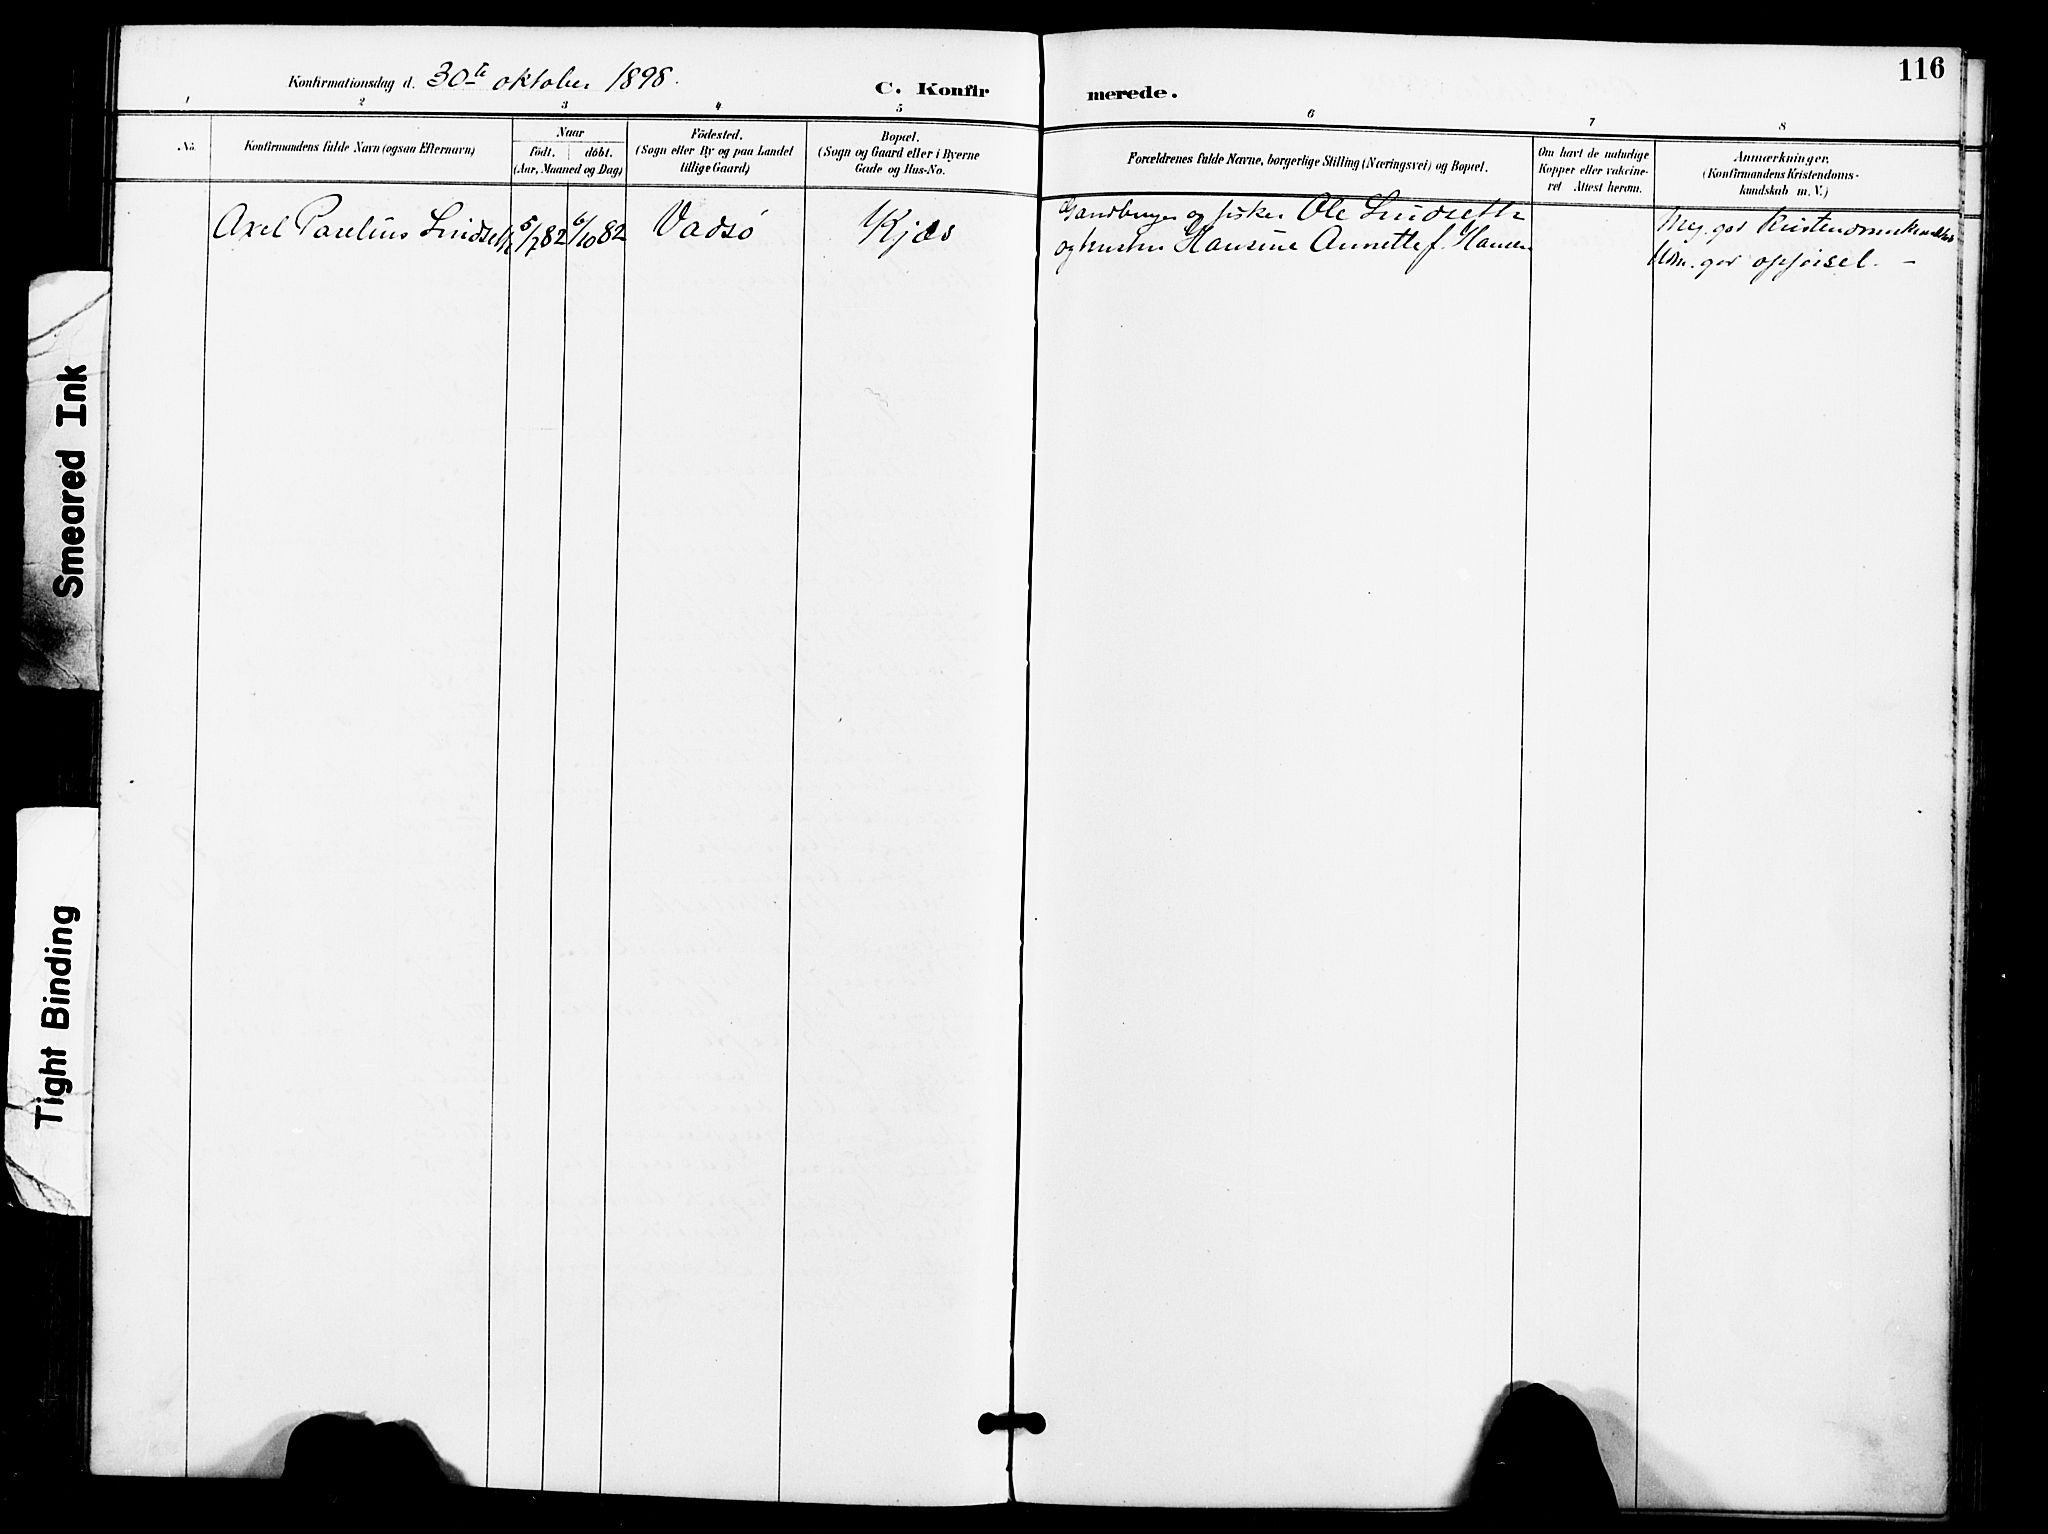 116
Konfirmationsdag d. 30te oktober 1898.
C. Konfirmerede.
1 2 3 4 5 6 7 8
No.
Konfirmandens fulde Navn (ogsaa Efternavn)
Naar
født. døbt.
(Aar, Maaned og Dag)
Födested.
(Sogn eller By og paa Landet
tillige Gaard)
Bopæl.
(Sogn og Gaard eller i Byerne
Gade og Hus-No.
Forældrenes fulde Navne, borgerlige Stilling (Næringsvei) og Bopæl.
Om havt de naturlige
Kopper eller vakcine-
ret Attest herom.
Anmærkninger,
(Konfirmandens Kristendoms-
kundskab m. V.)
Axel Paulius Lindseth 5/7 82 6/10 82 Vadsø Kjøs
Gaardbruger og fisker Ole Lindseth
og hustru Hansine Annette f. Hansen
Meg. god Kristendomskundskab
Udm. god opførsel. –
Smeared Ink
Tight Binding